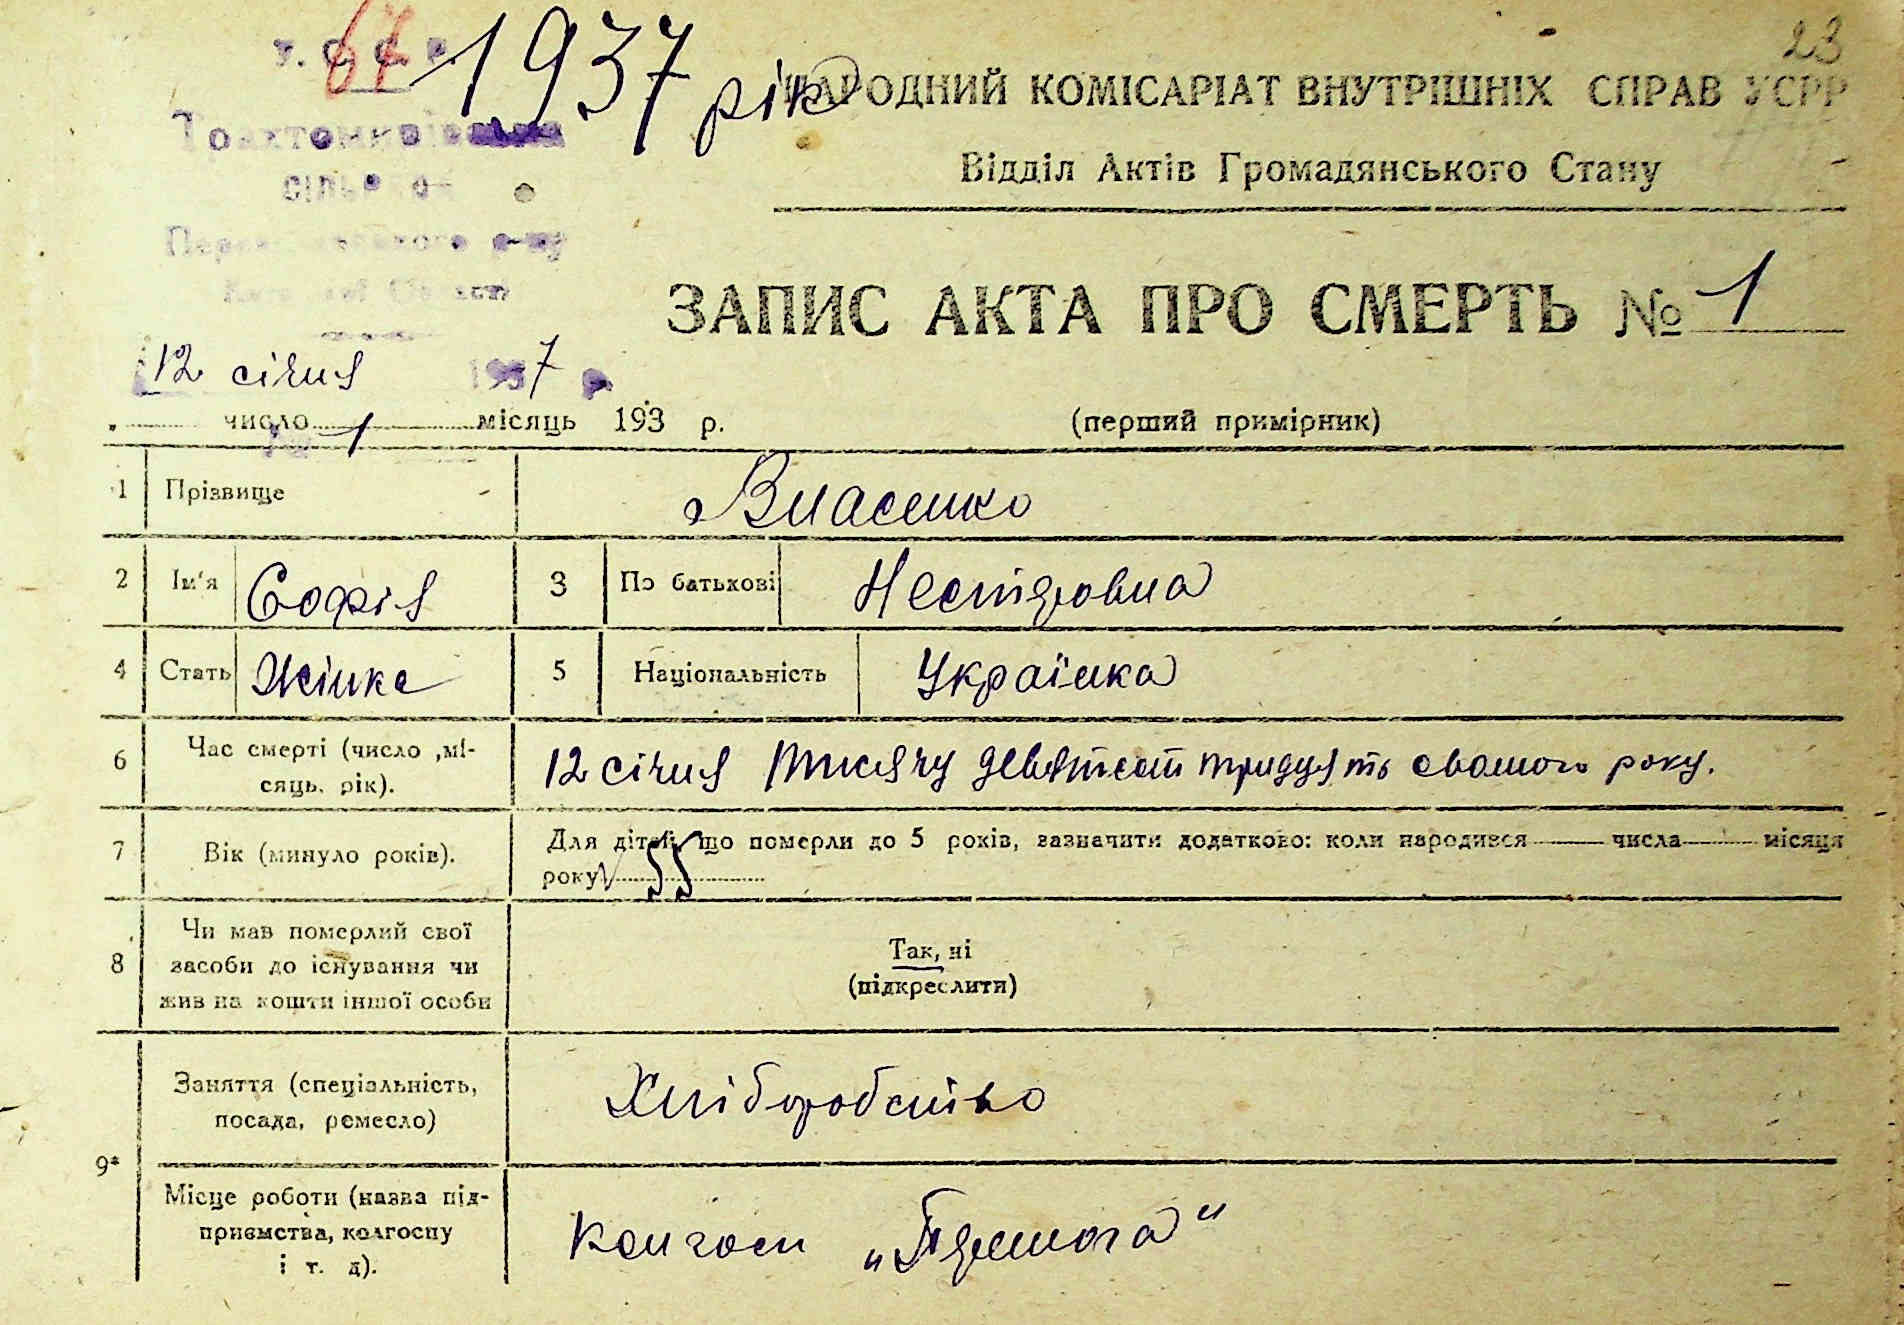 У. С. С. Р.
67
1937 рік
23
НАРОДНИЙ КОМІСАРІАТ ВНУТРІШНІХ СПРАВ УСРР
Відділ Актів Громадянського Стану
ЗАПИС АКТА ПРО СМЕРТЬ № 1
12 січня 1937 р.
число 1 місяць 193 р.
(перший примірник)
1 Прізвище Власенко
2 Ім'я Софія 3 По батькові Несторовна
4 Стать Жінка 5 Національність Українка
6 Час смерті (число ,мі-
сяць, рік).
12 січня тисячу девятсот тридцять сьомого року.
7 Вік (минуло років).
Для дітей, що померли до 5 років, зазначити додатково: коли народився числа місяця
року 55
8 Чи мав померлий свої
засоби до існування чи
жив на кошти іншої особи
Так, ні
(підкреслити)
9*
Заняття (спеціальність,
посада, ремесло)
Хліборобство
Місце роботи (назва під-
приємства, колгоспу
і т. д).
Колгосп „Перемога“